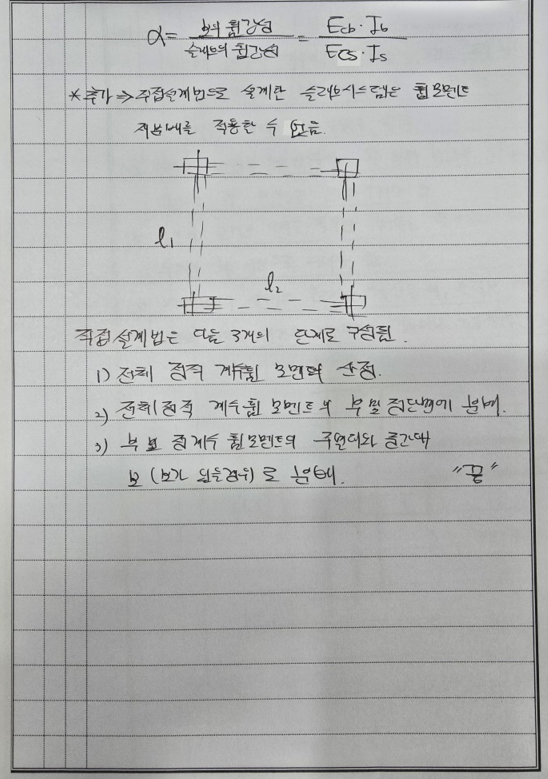 α = 보의 휨강성 / 슬래브의 휨강성 = Ecb·Ib / Ecs·Is
* 추가 ⇒ 직접설계법으로 설계한 슬래브시스템은 휨모멘트
재분배를 적용할 수 없음.
l₁
l₂
직접설계법은 다음 3개의 단계로 구성됨.
1) 전체 정적 계수휨 모멘트 산정.
2) 전체 정적 계수휨모멘트의 부 및 정단면에 분배.
3) 부 및 정계수 휨모멘트의 주열대와 중간대
보 (보가 있을경우)로 분배.
"끝"